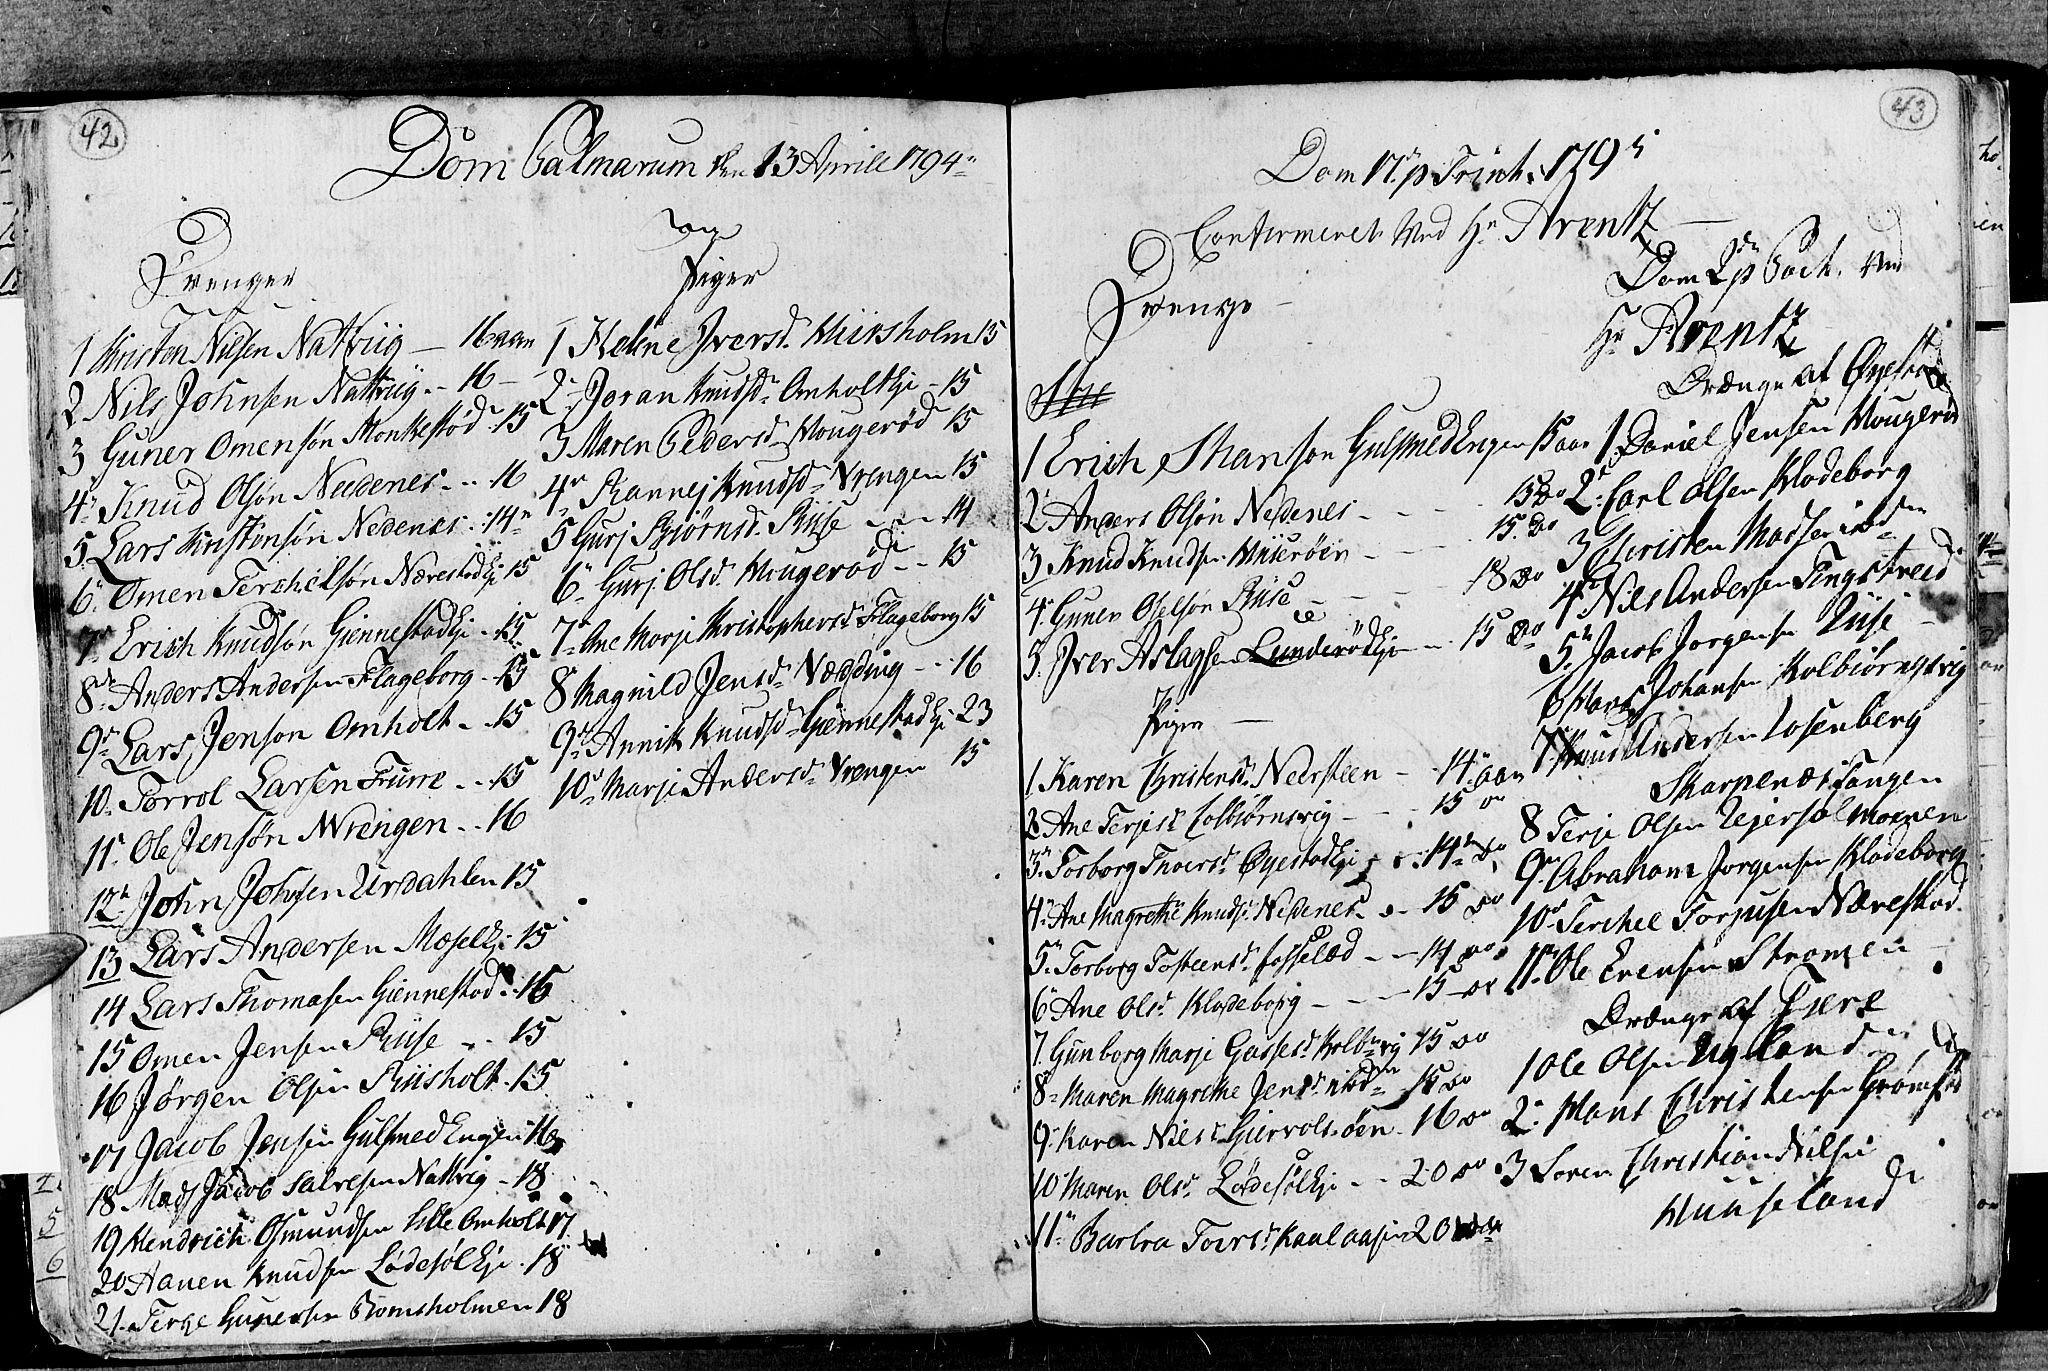 42
Dom Palmarum den 13 Aprile 1794
Drenger
1 Kristen Nilsen Natviig — 16 aar
2 Nils Johnsen Natviig - 16 -
3 Guner Omensøn Monkestød - 15
4 Knud Olsøn Nedenes - 16
5 Lars Kristensøn Nedenes - 14
6 Omen Terchelsøn Nærestadkji 15
7 Erich Knudsøn Giennestadkji - 15
8 Anders Andersen Flageborg - 15
9 Lars Jenson Omholt - 15
10 Torrol Larsen Furre - 15
11 Ole Jensøn Wrengen - 16
12 John Johnsen Urdahlen 15
13 Lars Andersen Moselkji 15
14 Lars Thomasen Giennestad - 16
15 Omen Jensen Riise - 15
16 Jørgen Olsen Riisholt - 15
17 Jacob Jensen Gulsmed Engen 16
18 Mads Jacob Salvesen Natvig - 18
19 Hendrich Osmundsen Lille Omholt 17
20 Hanen Knudsen Lødesølkji - 18
21 Terge Gunersen Romsholmen 18
og
Piger
1 Helene Iversd. Hiirsholm 15
2 Joran Knudsd. Omholtkji - 15
3 Maren Pedersd. Hougerød 15
4 Rannej Knudsd. Vrengen 15
5 Gurj Biørnsd. Riise - 14
6 Gurj Olsd. Hougerød - 15
7 Ane Marje Kristophersd. Flageborg 15
8 Magnild Jensd. Nædding - 16
9 Annik Knudsd. Giennestadkji 23
10 Marje Andersd. Vrengen 15
43
Dom 17 p Trinit. 1795
Confermeret ved Hr Arentz —
Drenge -
1 Erich Hanson Gulsmed Engen 15 aar
2 Anders Olsøn Nedenes - 15 do
3 Knud Knudsen - 15 do
4 Guner Oselsøn Riise - 18 do
5 Iver Aslagsen Lunderødkji - 15 do
Piger —
1 Karen Christensd. Nedersteen - 14 aar
2 Ane Terjesd. Colbiørnsvig - 15 do
3 Torborg Thorsd. Øyestadkji - 14 do
4 Ane Magrethe Knudsd. Nedenes - 15 do
5 Torborg Tosteensd. Fosselæd - 14 do
6 Ane Olsd. Klodeborg - 15 do
7 Gunborg Marje Gassesd. Kolb.vig 15 do
8 Maren Magrethe Jensd. ibd. 15 do
9 Karen Nilsd. Giervolsøen - 16 do
10 Maren Olsd. Lødesølkji - 20 do
11 Barbra Torsd. Kaalaasen 20 do
Dom 2 p Pach. ved
Hr Arentz
Drænge af Øyestad
1 Daniel Jensen Hougerød
2 Carl Olsen Klodeborg
3 Christen Madsen ibd.
4 Nils Andersen Tingstveid
5 Jacob Jorgensen Riise
6 Hans Johansen Kolbiørnsvig
7 Knud Andersen Losenberg
Skarpenæs Tangen
8 Terje Olsen Nejersølmoenen
9 Abraham Jorgensen Klodeborg
10 Terchel Torjusen Nærestad
11 Ole Evensen Strømen
Drænge af Fiære
1 Ole Olsen Ugland
2 Hans Christensen Grømstad
3 Søren Christian Nilsen
Huuseland